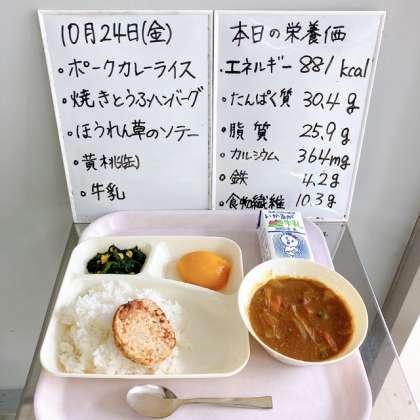 10月24日(金)
・ポークカレーライス
・焼きとうふハンバーグ
・ほうれん草のソテー
・黄桃(缶)
・牛乳
本日の栄養価
・エネルギー 881 kcal
・たんぱく質 30.4 g
・脂質 25.9 g
・カルシウム 364mg
・鉄 4.2 g
・食物繊維 10.3 g
牛乳